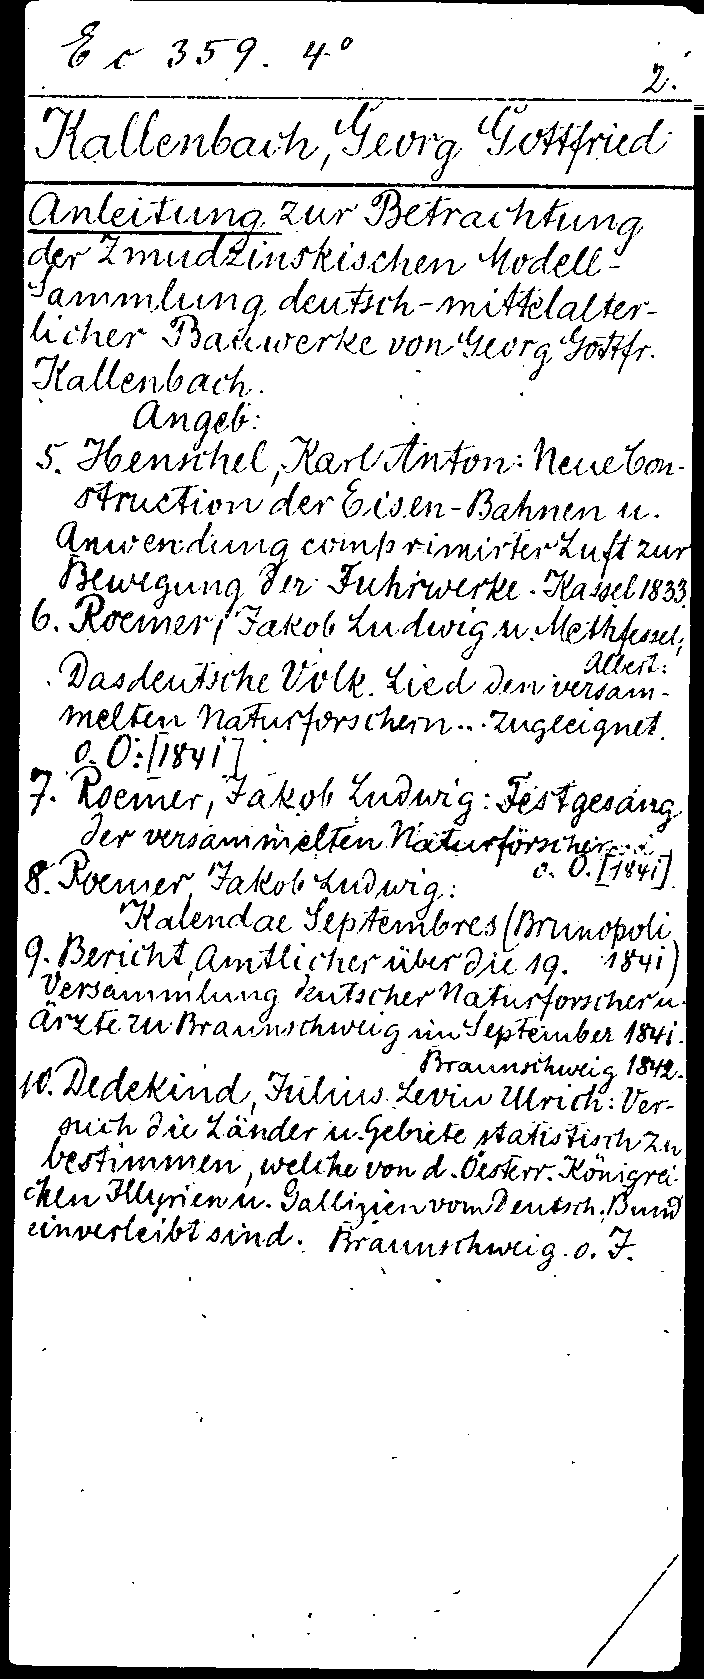 Ec 359. 4°
2.
Kallenbach, Georg Gottfried
Anleitung zur Betrachtung
der Zmudzinskischen Modell-
Sammlung deutsch-mittelalter-
licher Bauwerke von Georg Gottfr.
Kallenbach.
Angeb:
5. Henschel, Karl Anton: Neue Con-
struction der Eisen-Bahnen u.
Anwendung comprimirter Luft zur
Bewegung der Fuhrwerke. Kassel 1833.
6. Roemer, Jakob Ludwig u. Methfessel,
Albert:
Das deutsche Volk. Lied den versam-
melten Naturforschern... zugeeignet.
o. O. [1841]
7. Roemer, Jakob Ludwig: Festgesang
der versammelten Naturforscher...
o. O. [1841].
8. Roemer, Jakob Ludwig:
Kalendae Septembres (Brunopoli
1841)
9. Bericht, Amtlicher über die 19.
Versammlung deutscher Naturforscher u.
Ärzte zu Braunschweig im September 1841.
Braunschweig 1842.
10. Dedekind, Julius Levin Ulrich: Ver-
such die Länder u. Gebiete statistisch zu
bestimmen, welche von d. Oesterr. Königrei-
chen Illyrien u. Gallizien vom Deutsch. Bund
einverleibt sind. Braunschweig o. J.